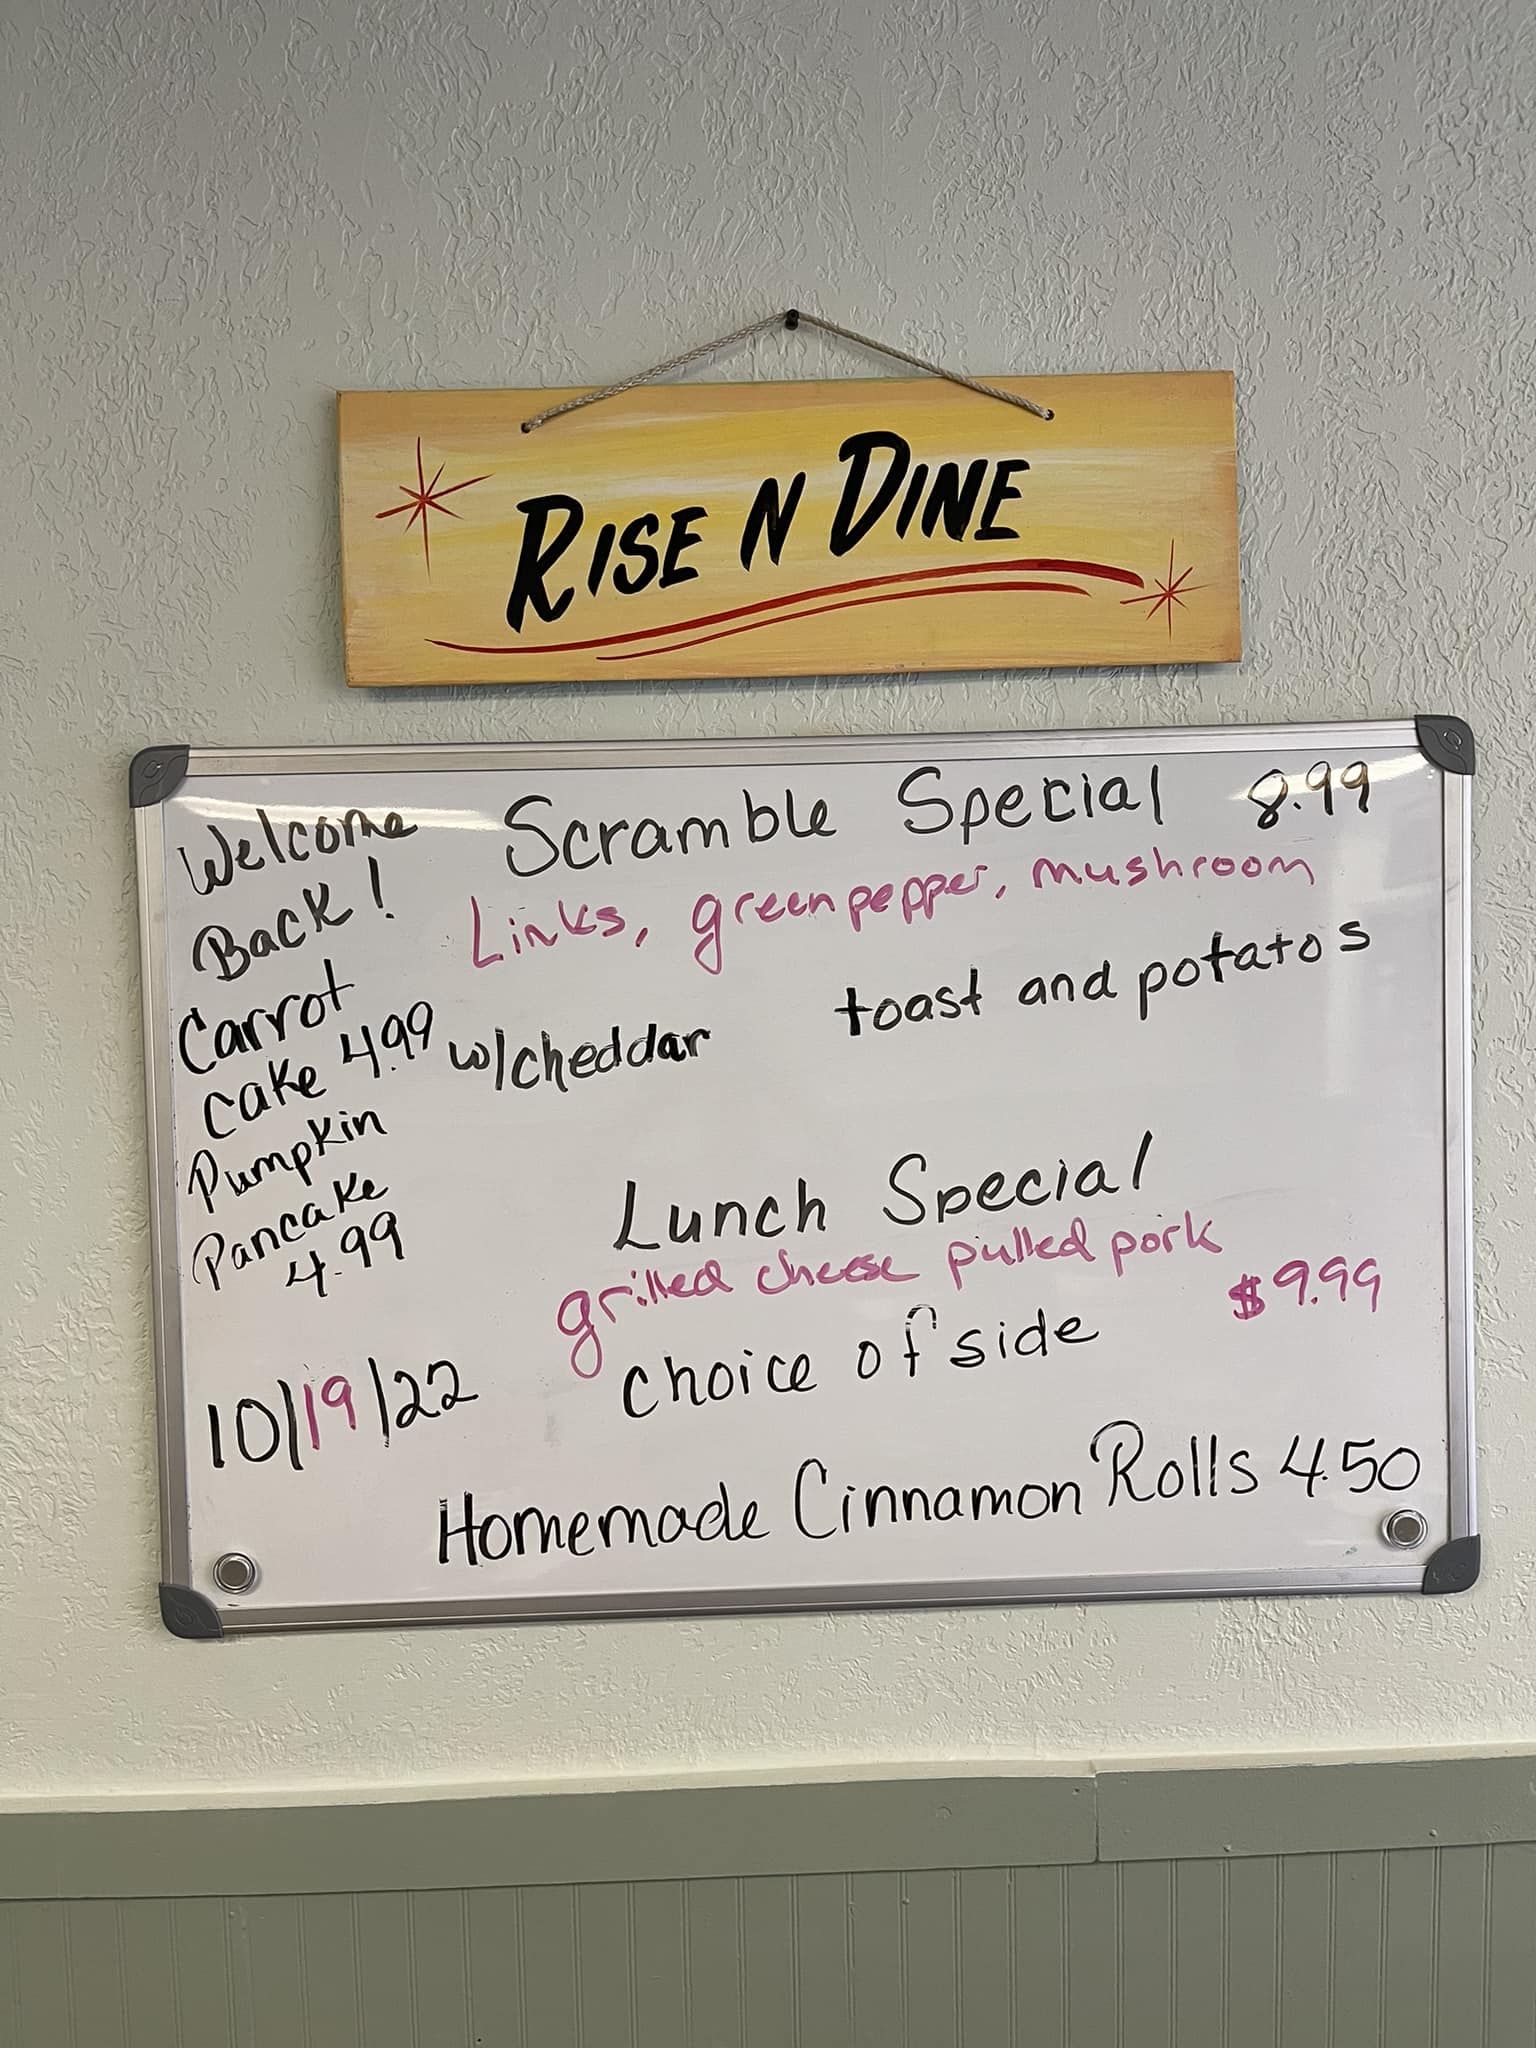 RISE N DINE
Welcome
Back!
Carrot
cake 4.99
Pumpkin
Pancake
4.99
10/19/22
Scramble Special 8.99
Links, green pepper, mushroom
w/cheddar toast and potatos
Lunch Special
grilled cheese pulled pork
$9.99
choice of side
Homemade Cinnamon Rolls 4.50